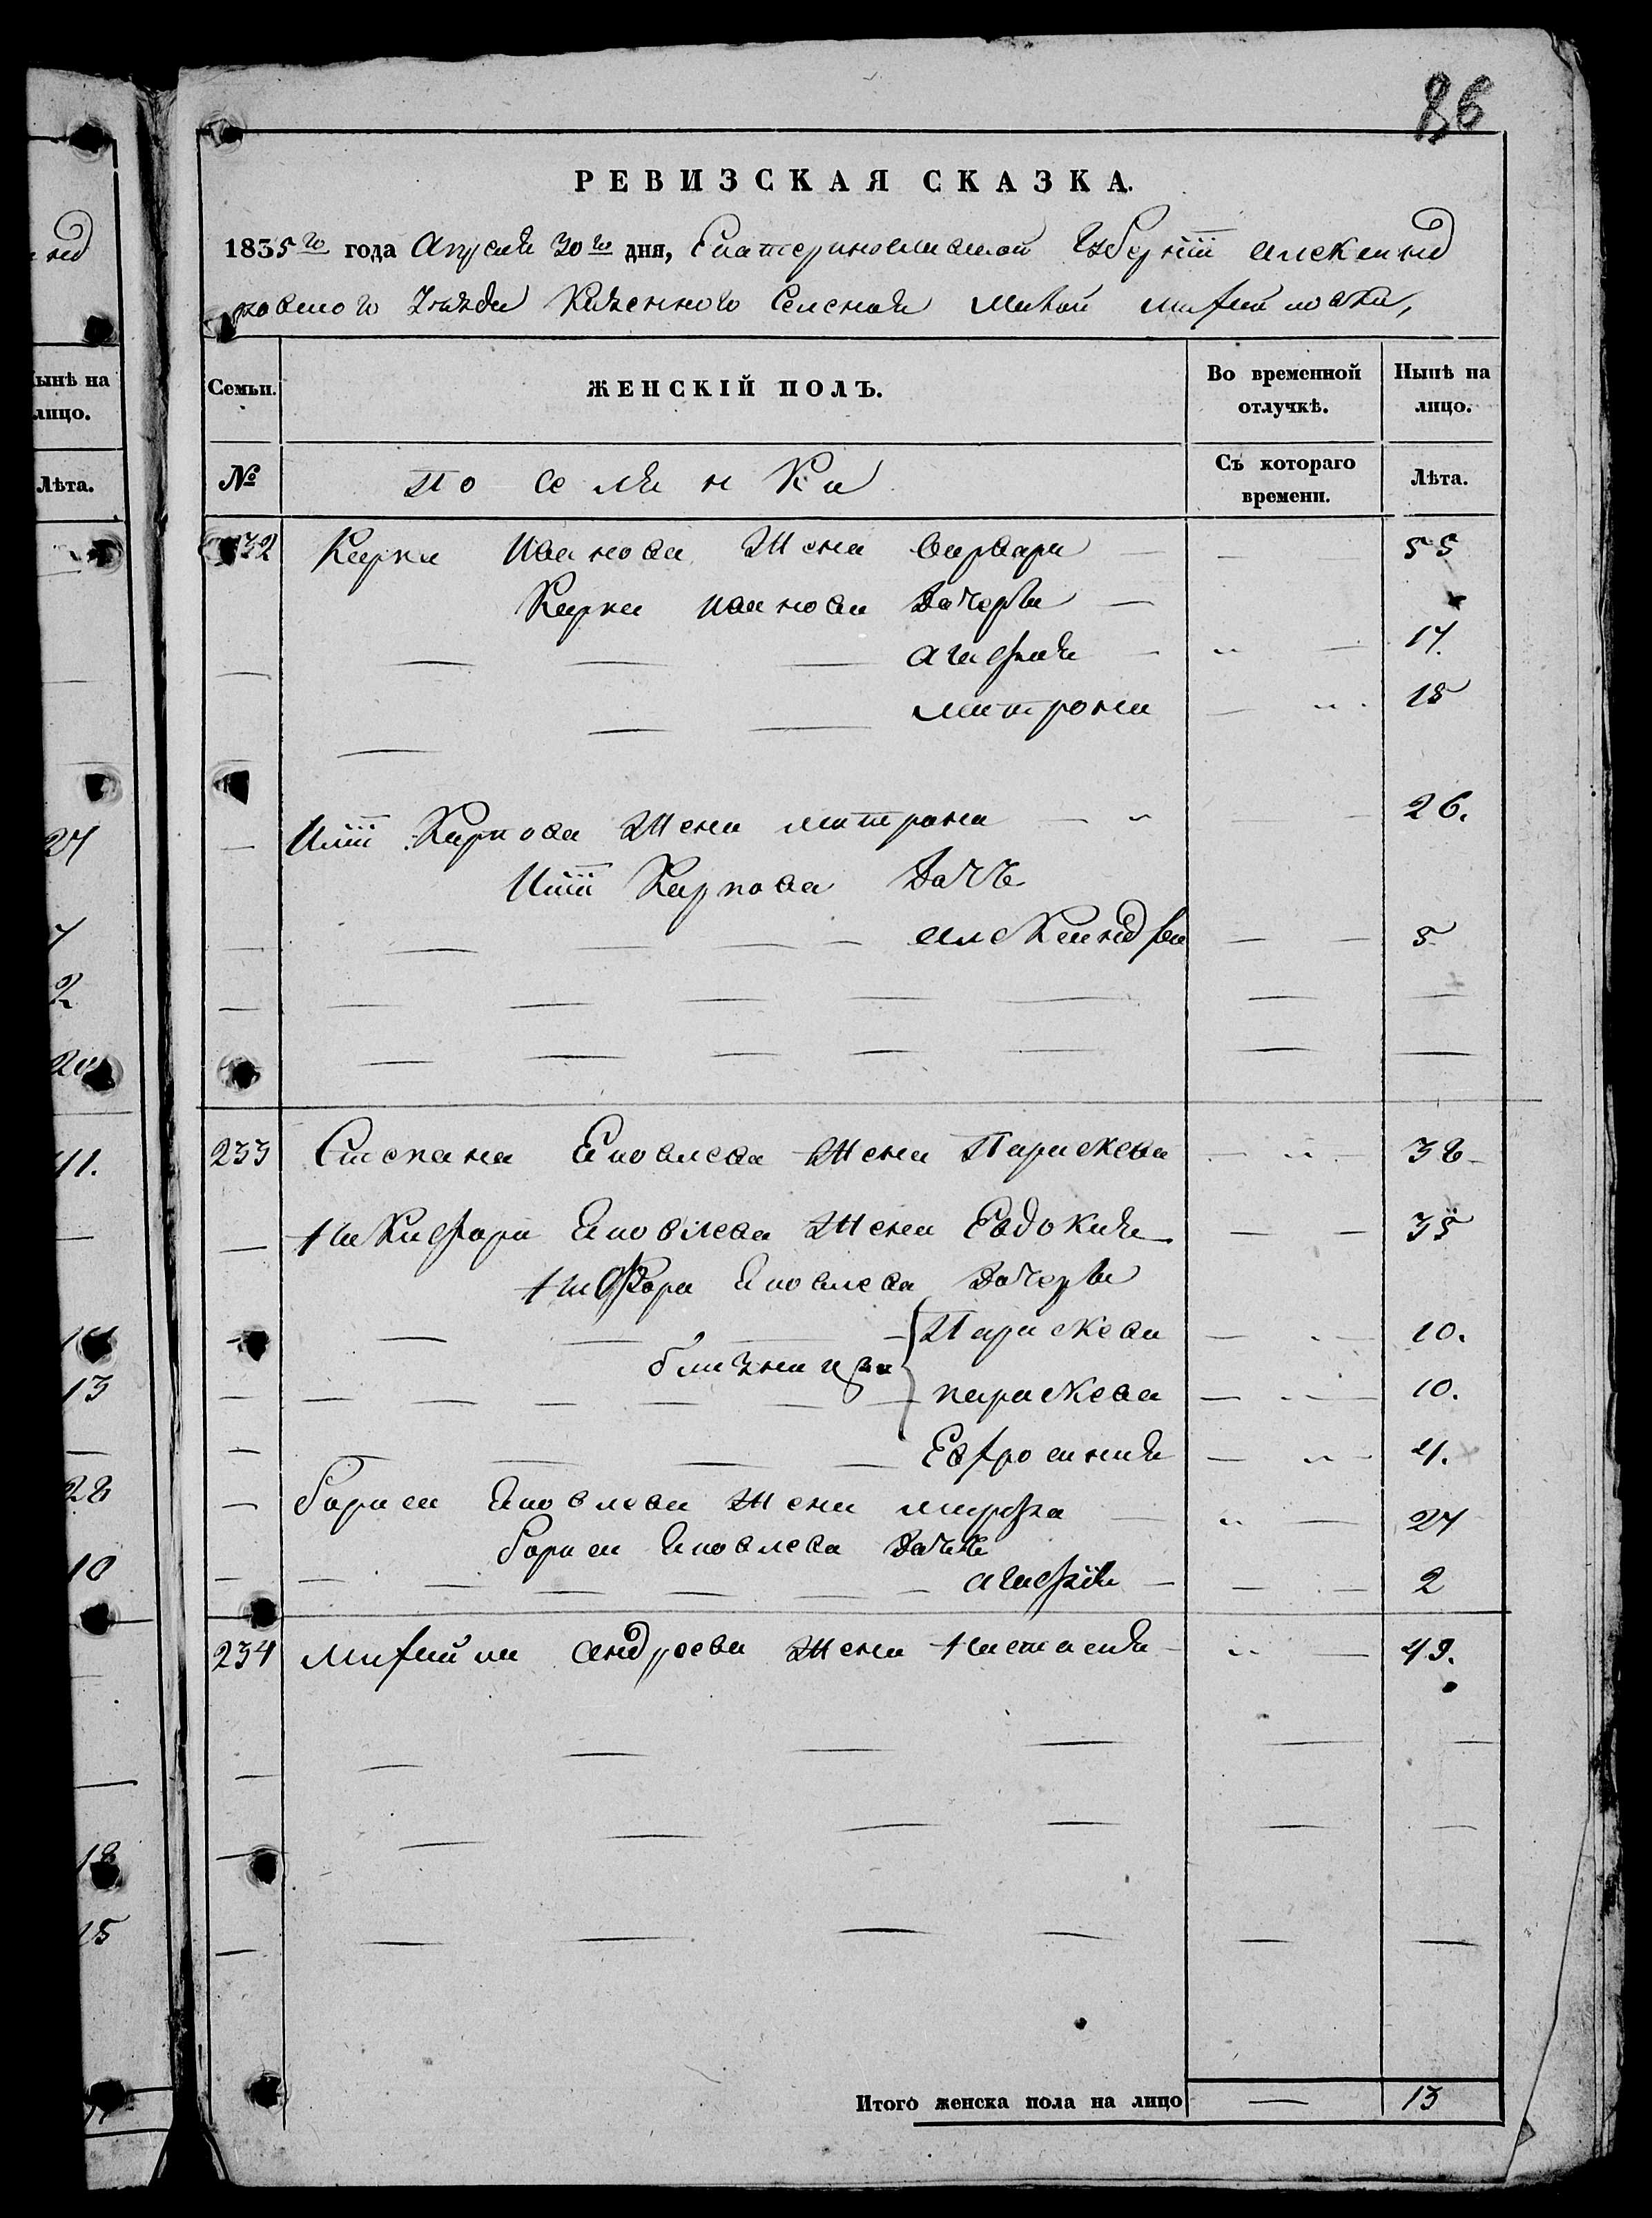 86
РЕВИЗСКАЯ СКАЗКА.
1835го года Апреля 30го дня, Екатеринославской Губернiи александ
ровского Уезда Казенного Селения Малой михайловки,
Семьи. ЖЕНСКІЙ ПОЛЪ. Во временной отлучкѣ. Нынѣ на лицо.
№ поселянки Съ котораго времени. Лѣта.
232 Карпа Иванова Жена варвара 55
Карпа иванова Дочерьи
агафия 17.
матрона 15
Илiи Карпова Жена матрона 26.
Илiи Карпова Дочь
александра 5
233 Степана Яковлева Жена Параскева 38
Никифора Яковлева Жена Евдокия 35
Никифора Яковлева Дочерьи
Параскева 10.
близнецы
параскева 10.
Евфросиния 4.
бориса Яковлева Жена марфа 27
бориса Яковлева Дочь
агафiя 2
234 михайла андреева Жена Настасия 49.
Итого женска пола на лицо 13
ынѣ на
лицо.
Лѣта.
27
7
2
20
41.
13
28
10
18
15